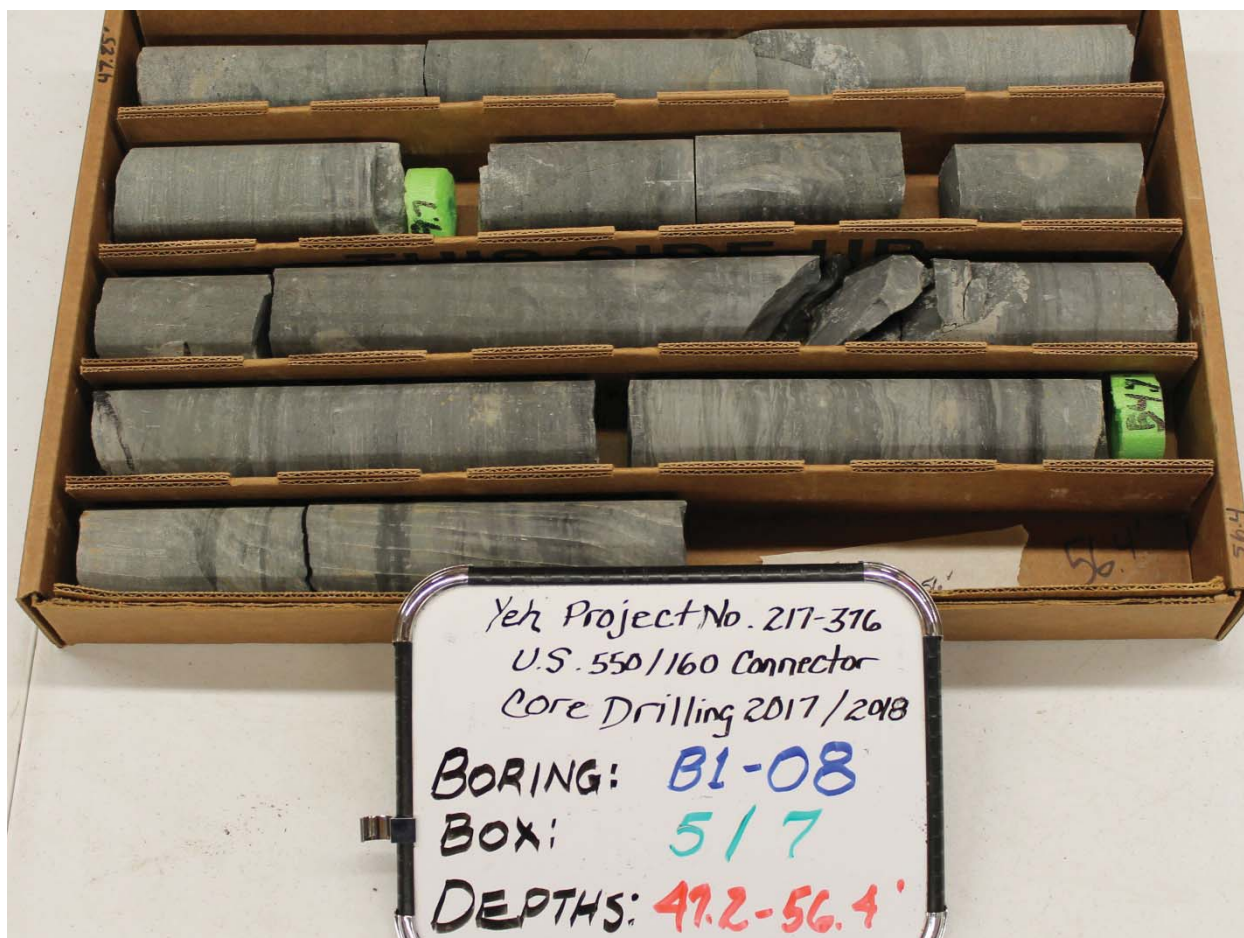 47.25'
49.7
THIS SIDE UP
54.7
56.4
56.4
Yeh Project No. 217-376
U.S. 550/160 Connector
Core Drilling 2017/2018
BORING: B1-08
BOX: 5/7
DEPTHS: 47.2-56.4'